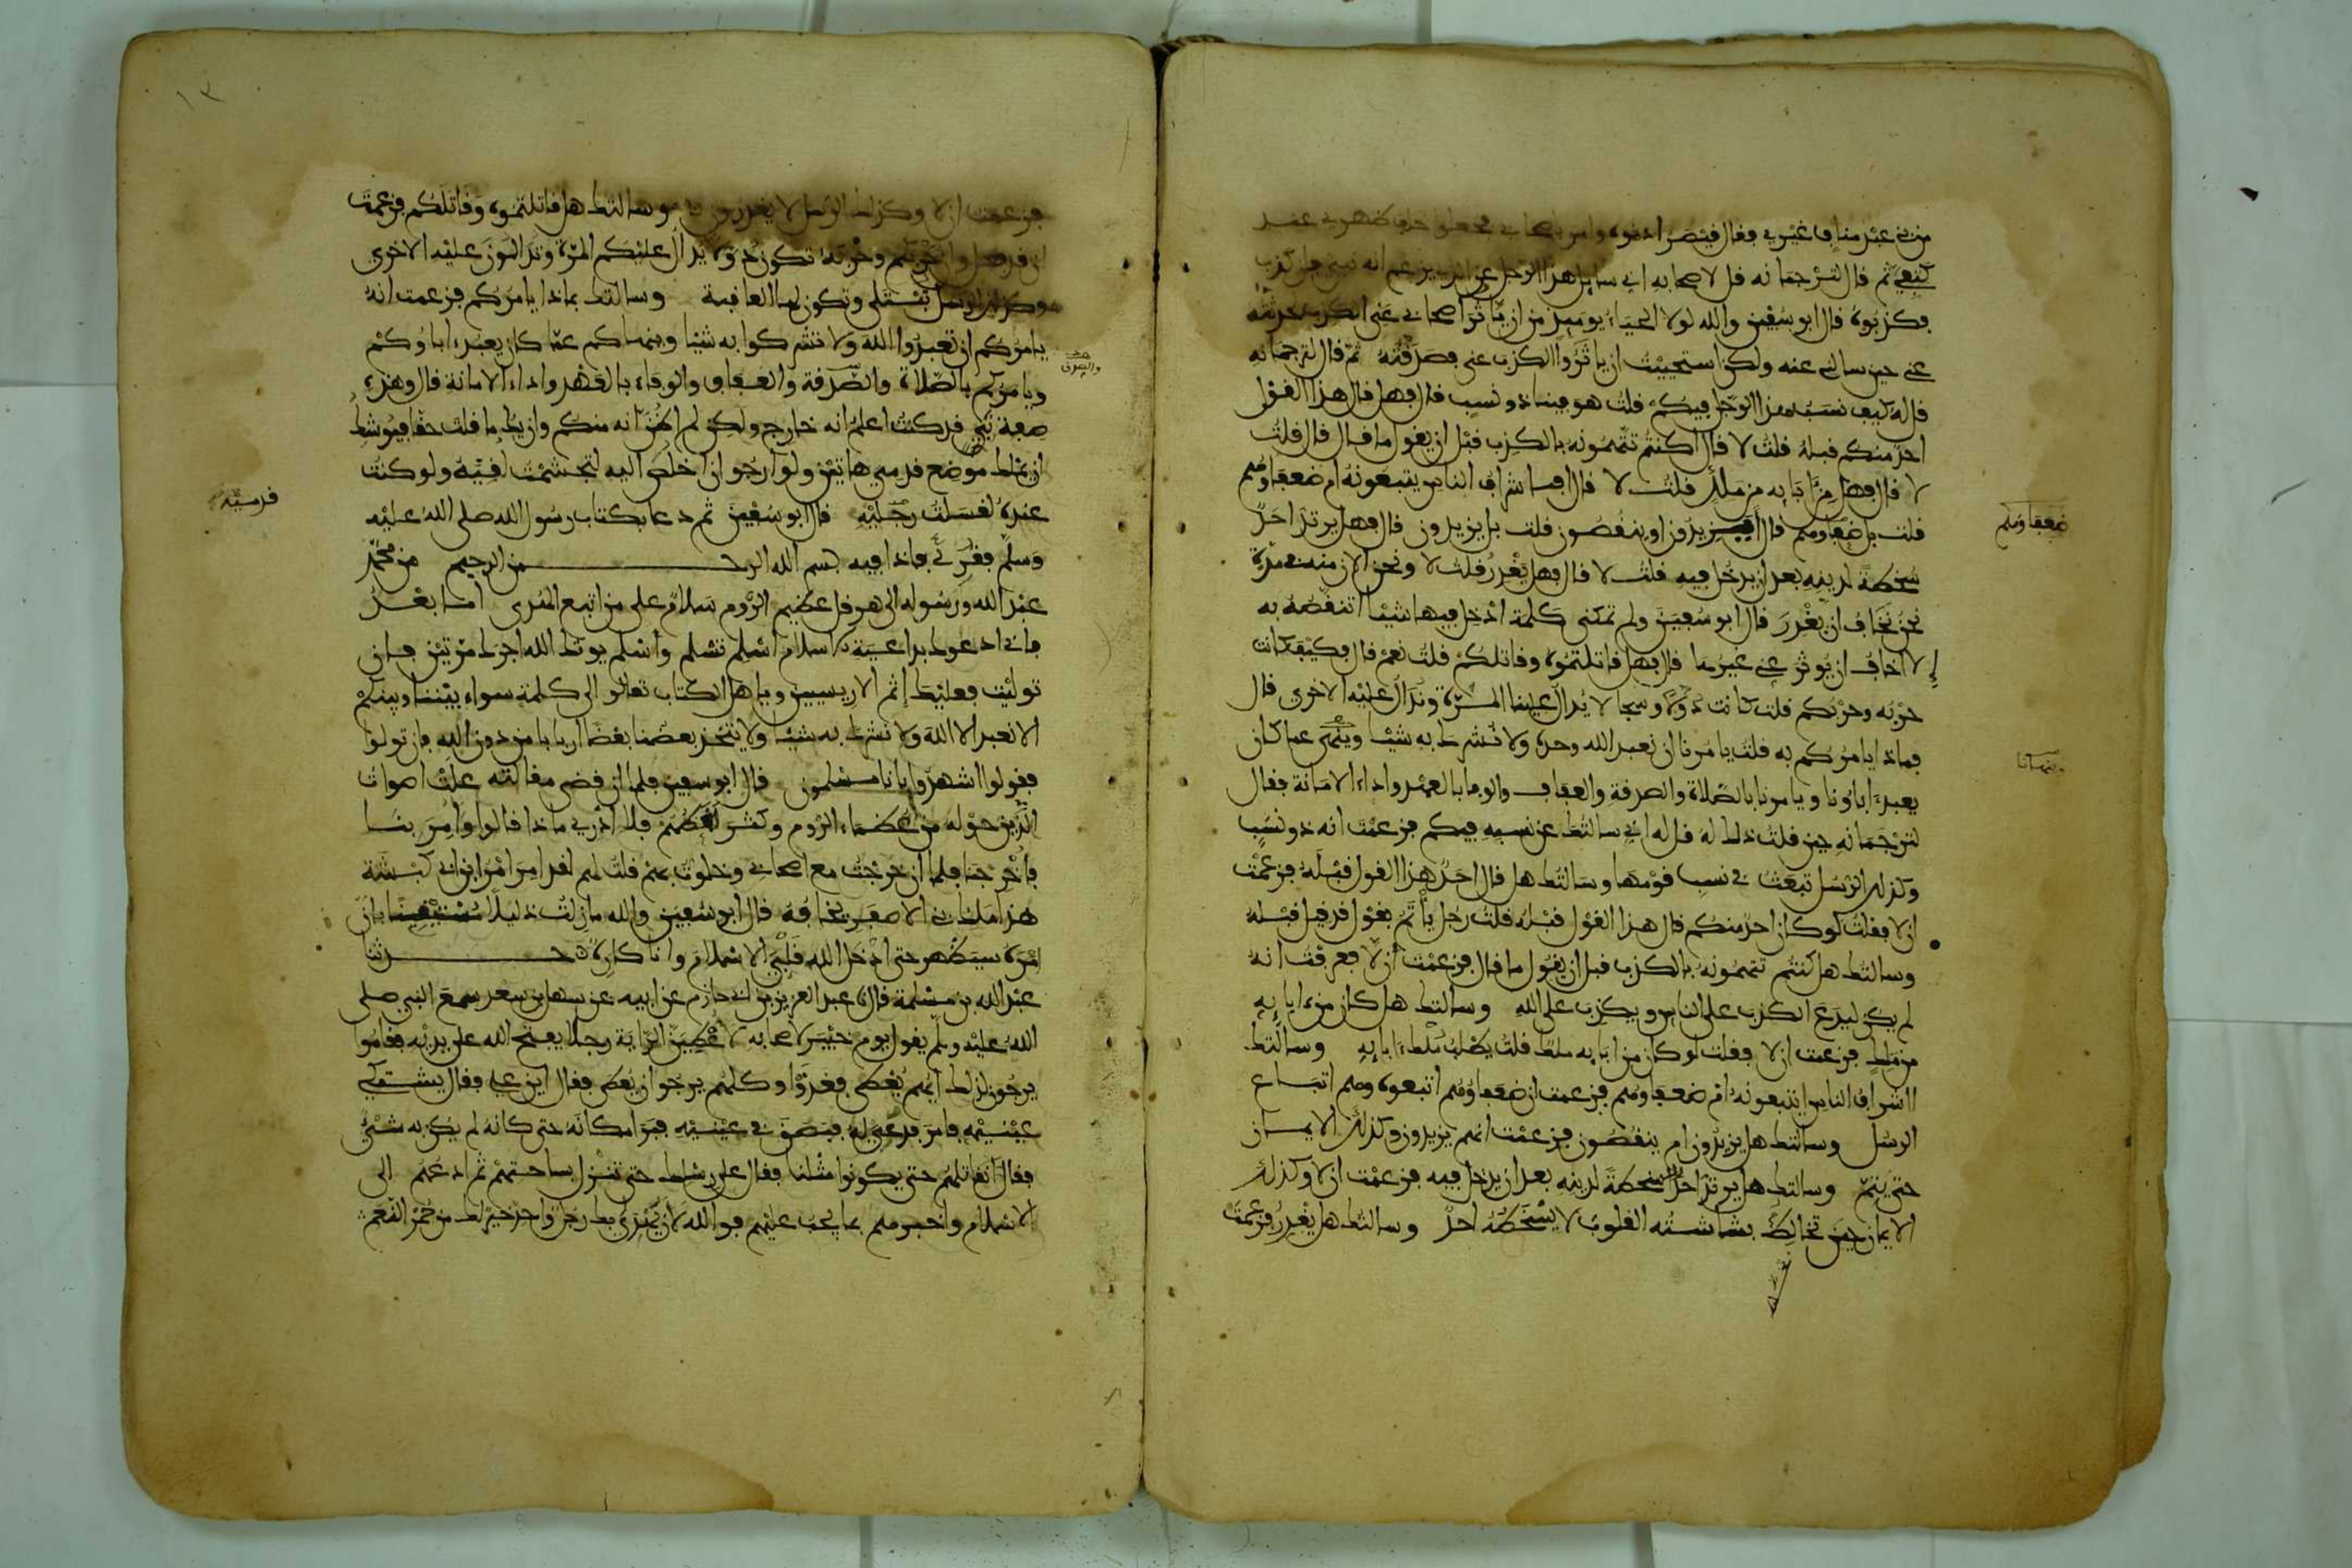 من بني عبد مناف غيري فقال قيصر ادنوه وامر باصحابي فجعلوا خلف ظهري عند
كتفي ثم قال لترجمانه قل لاصحابه اني سائل هذا الرجل عن الذي يزعم انه نبي فان كذب
فكذبوه قال ابو سفين والله لولا الحياء يومئذ من ان ياثر اصحابي عني الكذب لحدثته
عني حين سالني عنه ولكن استحييت ان ياثروا الكذب عني فصدقته ثم قال لترجمانه
قل له كيف نسب هذا الرجل فيكم قلت هو فينا ذو نسب قال فهل قال هذا القول
احد منكم قبله قلت لا قال اكنتم تتهمونه بالكذب قبل ان يقول ما قال قال قلت
لا قال فهل من ابايه من ملك قلت لا قال افاشراف الناس يتبعونه ام ضعفاوهم
قلت بل ضعفاوهم قال افيزيدون او ينقصون قلت بل يزيدون قال فهل يرتد احد
سخطة لدينه بعد ان يدخل فيه قلت لا قال فهل يغدر قلت لا ونحن الان منه في مدة
نحن نخاف ان يغدر قال ابو سفين ولم تمكني كلمة ادخل فيها شيئا اتنقصه به
لا اخاف ان يوثر عني غيرها قال فهل قاتلتموه وقاتلكم قلت نعم قال فكيف كانت
حربه وحربكم قلت كانت دولا وسجالا يدال علينا المرة وندال عليه الاخرى قال
فماذا يامركم به قلت يامرنا ان نعبد الله وحده ولا نشرك به شيئا وينهى عما كان
يعبد اباونا ويامرنا بالصلاة والصدقة والعفاف والوفا بالعهد واداء الامانة فقال
لترجمانه حين قلت ذلك له قل له اني سالتك عن نسبه فيكم فزعمت انه ذو نسب
وكذلك الرسل تبعث في نسب قومها وسالتك هل قال احد هذا القول قبله فزعمت
ان لا فقلت لو كان احد منكم قال هذا القول قبله قلت رجل ياتم بقول قد قيل قبله
وسالتك هل كنتم تتهمونه بالكذب قبل ان يقول ما قال فزعمت ان لا فعرفت انه
لم يكن ليدع الكذب على الناس ويكذب على الله وسالتك هل كان من ابايه
من ملك فزعمت ان لا فقلت لو كان من ابايه ملك قلت يطلب ملك ابايه وسالتك
ااشراف الناس يتبعونه ام ضعفاوهم فزعمت ان ضعفاوهم اتبعوه وهم اتباع
الرسل وسالتك هل يزيدون ام ينقصون فزعمت انهم يزيدون وكذلك الايمان
حتى يتم وسالتك هل يرتد احد سخطة لدينه بعد ان يدخل فيه فزعمت ان لا وكذلك
الايمان حين تخالط بشاشته القلوب لا يسخطه احد وسالتك هل يغدر فزعمت
ضعفاوهم
وينهانا
١٣
فزعمت ان لا وكذلك الرسل لا يغدرون وسالتك هل قاتلتموه وقاتلكم فزعمت
ان قد فعل وان حربكم وحربه تكون دولا يدال عليكم المرة وتدالون عليه الاخرى
وكذلك الرسل تبتلى وتكون لها العاقبة وسالتك بماذا يامركم فزعمت انه
يامركم ان تعبدوا الله ولا تشركوا به شيئا وينهاكم عما كان يعبد اباوكم
ويامركم بالصلاة والصدقة والعفاف والوفاء بالعهد واداء الامانة قال وهذه
صفة نبي قد كنت اعلم انه خارج ولكن لم اظن انه منكم وان يك ما قلت حقا فيوشك
ان يملك موضع قدمي هاتين ولو ارجو ان اخلص اليه لتجشمت لقيه ولو كنت
عنده لغسلت رجليه قال ابو سفين ثم دعا بكتاب رسول الله صلى الله عليه
وسلم فقرئ فاذا فيه بسم الله الرحمن الرحيم من محمد
عبد الله ورسوله الى هرقل عظيم الروم سلام على من اتبع الهدى اما بعد
فاني ادعوك بداعية الاسلام اسلم تسلم واسلم يوتك الله اجرك مرتين فان
توليت فعليك اثم الاريسيين ويا هل الكتاب تعالو الى كلمة سواء بيننا وبينكم
الا نعبد الا الله ولا نشرك به شيئا ولا يتخذ بعضنا بعضا اربابا من دون الله فان تولوا
فقولوا اشهدوا بانا مسلمون قال ابو سفين فلما ان قضى مقالته علت اصوات
الذين حوله من عظماء الروم وكثر لغطهم فلا ادري ماذا قالوا وامر بنا
فاخرجنا فلما ان خرجت مع اصحابي وخلوت بهم قلت لهم لقد امر امر ابن ابي كبشة
هذا ملك بني الاصفر يخافه قال ابو سفين والله ما زلت ذليلا مستيقنا بان
امره سيظهر حتى ادخل الله قلبي الاسلام وانا كاره حدثنا
عبد الله بن مسلمة قال نا عبد العزيز بن ابي حازم عن ابيه عن سهل بن سعد سمع النبي صلى
الله عليه وسلم يقول يوم خيبر لاصحابه لاعطين الراية رجلا يفتح الله على يديه فقاموا
يرجون لذلك ايهم يعطى فغدوا وكلهم يرجو ان يعطى فقال اين علي فقال يشتكي
عينيه فامر فدعي له فبصق في عينيه فبرا مكانه حتى كانه لم يكن به شيء
فقال نقاتلهم حتى يكونوا مثلنا فقال على رسلك حتى تنزل بساحتهم ثم ادعهم الى
الاسلام واخبرهم بما يجب عليهم فوالله لان يهدى بك رجل واحد خير لك من حمر النعم
والصدق
قدميه